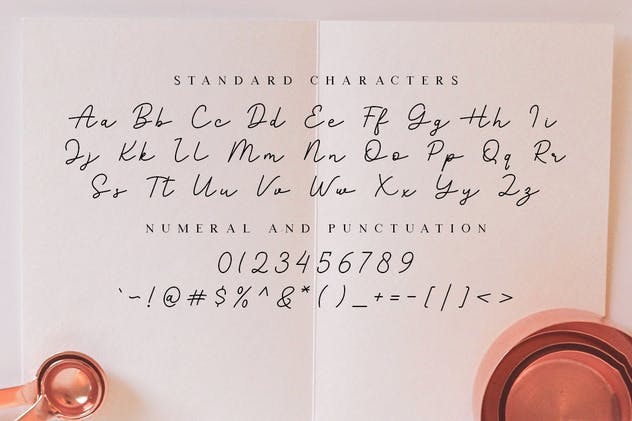 STANDARD CHARACTERS
Aa Bb Cc Dd Ee Ff Gg Hh Ii
Jj Kk Ll Mm Nn Oo Pp Qq Rr
Ss Tt Uu Vv Ww Xx Yy Zz
NUMERAL AND PUNCTUATION
0123456789
`~!@#$%^&*()_+=-[|]<>